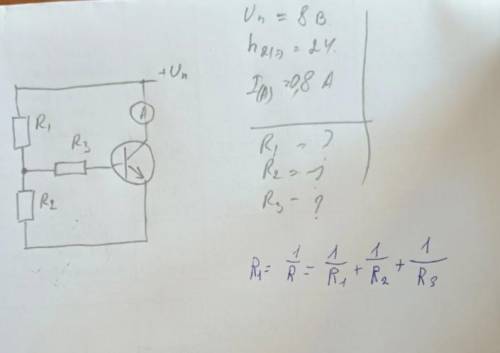 +Uп
A
R1
R3
R2
Uп = 8 В
h21э = 24.
I(A) = 0,8 A
R1 - ?
R2 = ?
R3 - ?
R1 = 1/R = 1/R1 + 1/R2 + 1/R3